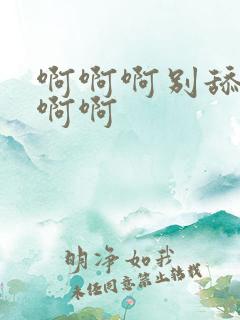 啊啊啊别舔
啊啊
明净如我
未经同意禁止转载